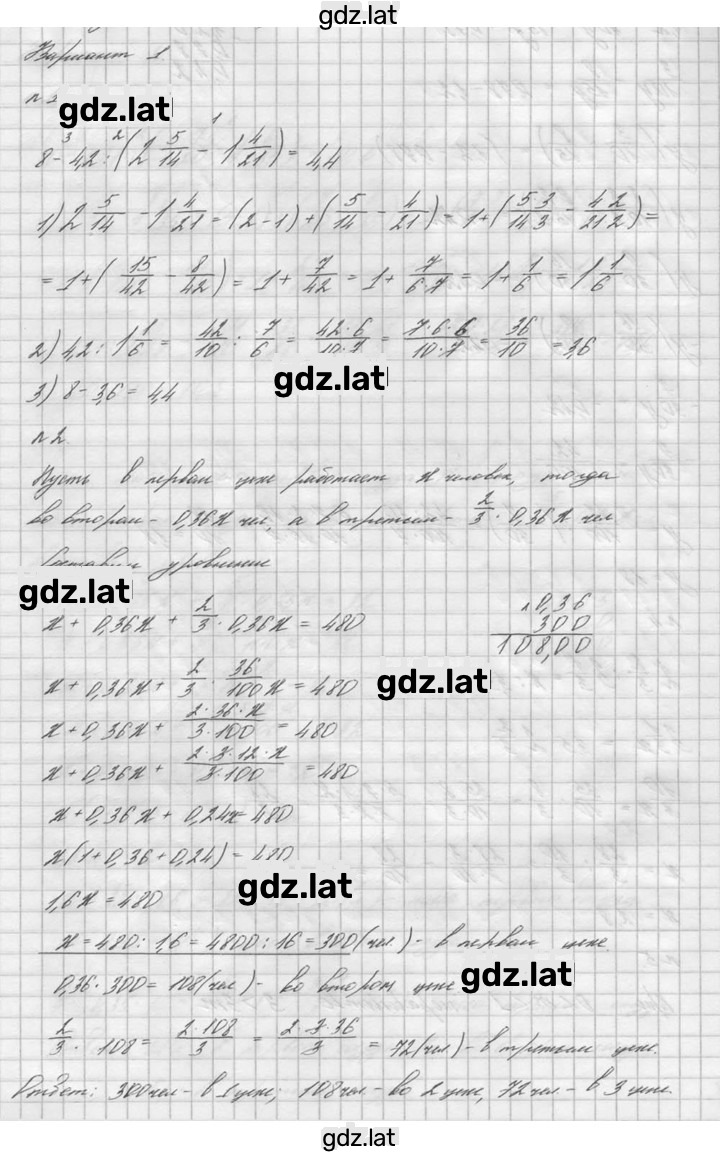 gdz.lat
Вариант 1.
gdz.lat
8 - 4,2 : (2 5/14 - 1 4/21) = 4,4
1) 2 5/14 - 1 4/21 = (2 - 1) + (5/14 - 4/21) = 1 + (5·3/14·3 - 4·2/21·2) =
= 1 + (15/42 - 8/42) = 1 + 7/42 = 1 + 7/6·7 = 1 + 1/6 = 1 1/6
2) 4,2 : 1 1/6 = 42/10 : 7/6 = 42·6/10·7 = 7·6·6/10·7 = 36/10 = 3,6
gdz.lat
3) 8 - 3,6 = 4,4
№2.
Пусть в первом цехе работает x человек, тогда
во втором - 0,36x чел, а в третьем - 2/3 · 0,36x чел
Составим уравнение
gdz.lat
x + 0,36x + 2/3 · 0,36x = 480
x 0,36
300
108,00
x + 0,36x + 2/3 · 36/100 x = 480
gdz.lat
x + 0,36x + 2·36·x/3·100 = 480
x + 0,36x + 2·3·12·x/3·100 = 480
x + 0,36x + 0,24x = 480
x(1 + 0,36 + 0,24) = 480
gdz.lat
1,6x = 480
x = 480 : 1,6 = 4800 : 16 = 300 (чел.) - в первом цехе.
0,36 · 300 = 108 (чел) - во втором цехе
gdz.lat
2/3 · 108 = 2·108/3 = 2·3·36/3 = 72 (чел) - в третьем цехе.
Ответ: 300 чел - в 1 цехе; 108 чел. - во 2 цехе, 72 чел - в 3 цехе.
gdz.lat